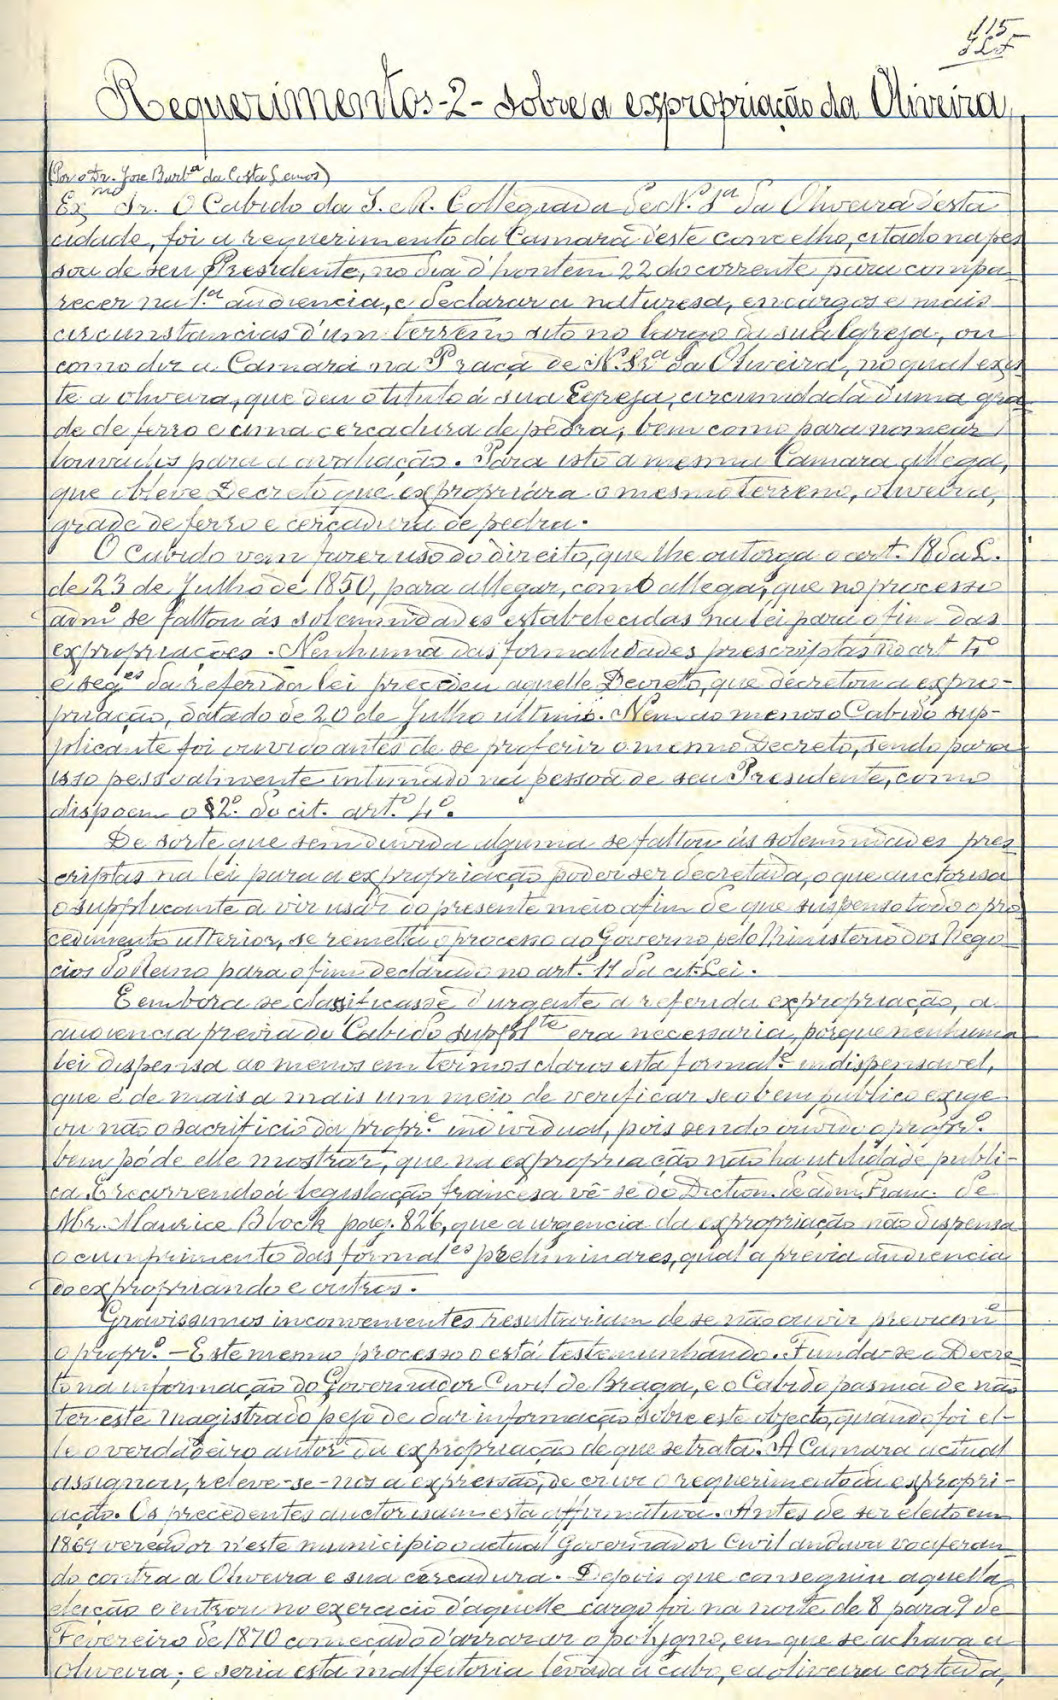 115
Requerimentos-2-sobre a expropriação da Oliveira
(Por o Dr. José Barb.ª da Costa Lemos)
Ex.mo Sr. O Cabido da I. e R. Collegiada de N. Sr.ª da Oliveira d'esta
cidade, foi a requerimento da Camara d'este concelho, citado na pes-
soa de seu Presidente, no dia d'hontem 22 do corrente para compa-
recer na 1.ª audiencia, e declarar a naturesa, encargos e mais
circunstancias d'um terreno sito no largo da sua Igreja, ou
como diz a Camara na Praça de N. Sr.ª da Oliveira, no qual exis-
te a oliveira, que deu o titulo á sua Egreja, circumdada d'uma gra-
de de ferro e uma cercadura de pedra, bem como para nomear
louvados para a avaliação. Para isto a mesma Camara allega,
que obteve Decreto que expropriára o mesmo terreno, oliveira,
grade de ferro e cercadura de pedra.
O Cabido vem fazer uso do direito, que lhe outorga o art. 18 da L.
de 23 de Julho de 1850, para allegar, como allega, que no processo
adm.º se faltou ás solemnidades estabelecidas na lei para o fim das
expropriações. Nenhuma das formalidades prescriptas no art. 4º
e seg.es da referida lei precedeu aquelle Decreto, que decretou a expro-
priação, datado de 20 de Julho ultimo. Nem ao menos o Cabido sup-
plicante foi ouvido antes de se proferir o mesmo Decreto, sendo para
isso pessoalmente intimado na pessoa de seu Presidente, como
dispoem o § 2º do cit. art.º 4º.
De sorte que sem duvida alguma se faltou ás solemnidades pres-
criptas na lei para a expropriação poder ser decretada, o que auctorisa
o supplicante a vir usar do presente meio afim de que suspenso todo o pro-
cedimento ulterior, se remetta o processo ao Governo pelo Ministerio dos Nego-
cios do Reino para o fim declarado no art. 11 da cit. Lei.
E embora se classificasse d'urgente a referida expropriação, a
audiencia previa do Cabido suppl.te era necessaria, porque nenhuma
lei dispensa ao menos em termos claros esta formal.e indispensavel,
que é de mais a mais um meio de verificar se o bem publico exige
ou não o sacrificio da propr.e individual, pois sendo ouvido o propr.º
bem póde elle mostrar, que na expropriação não ha utilidade publi-
ca. E recorrendo á legislação francesa vê-se do Diction. de adm. Franc. de
Mr. Maurice Block pag. 826, que a urgencia da expropriação não dispensa
o cumprimento das formal.es preliminares, qual a previa audiencia
do expropriando e outros.
Gravissimos inconvenientes resultariam de se não ouvir previam.e
o propr.º - Este mesmo processo o está testemunhando. Funda-se o Decre-
to na informação do Governador Civil de Braga, e o Cabido pasma de não
ter este Magistrado pejo de dar informação sobre este objecto, quando foi el-
le o verdadeiro autor da expropriação de que se trata. A Camara actual
assignou, releve-se-nos a expressão, de cruz o requerimento da expropri-
ação. Os precedentes auctorisam esta affirmativa. Antes de ser eleito em
1869 vereador n'este municipio o actual Governador Civil andava vociferan-
do contra a Oliveira e sua cercadura. Depois que conseguiu aquella
eleição e entrou no exercicio d'aquelle cargo foi na noite de 8 para 9 de
Fevereiro de 1870 começado d'arrazar o polygno, em que se achava a
oliveira; e seria esta malfeitoria levada a cabo, e a oliveira cortada,